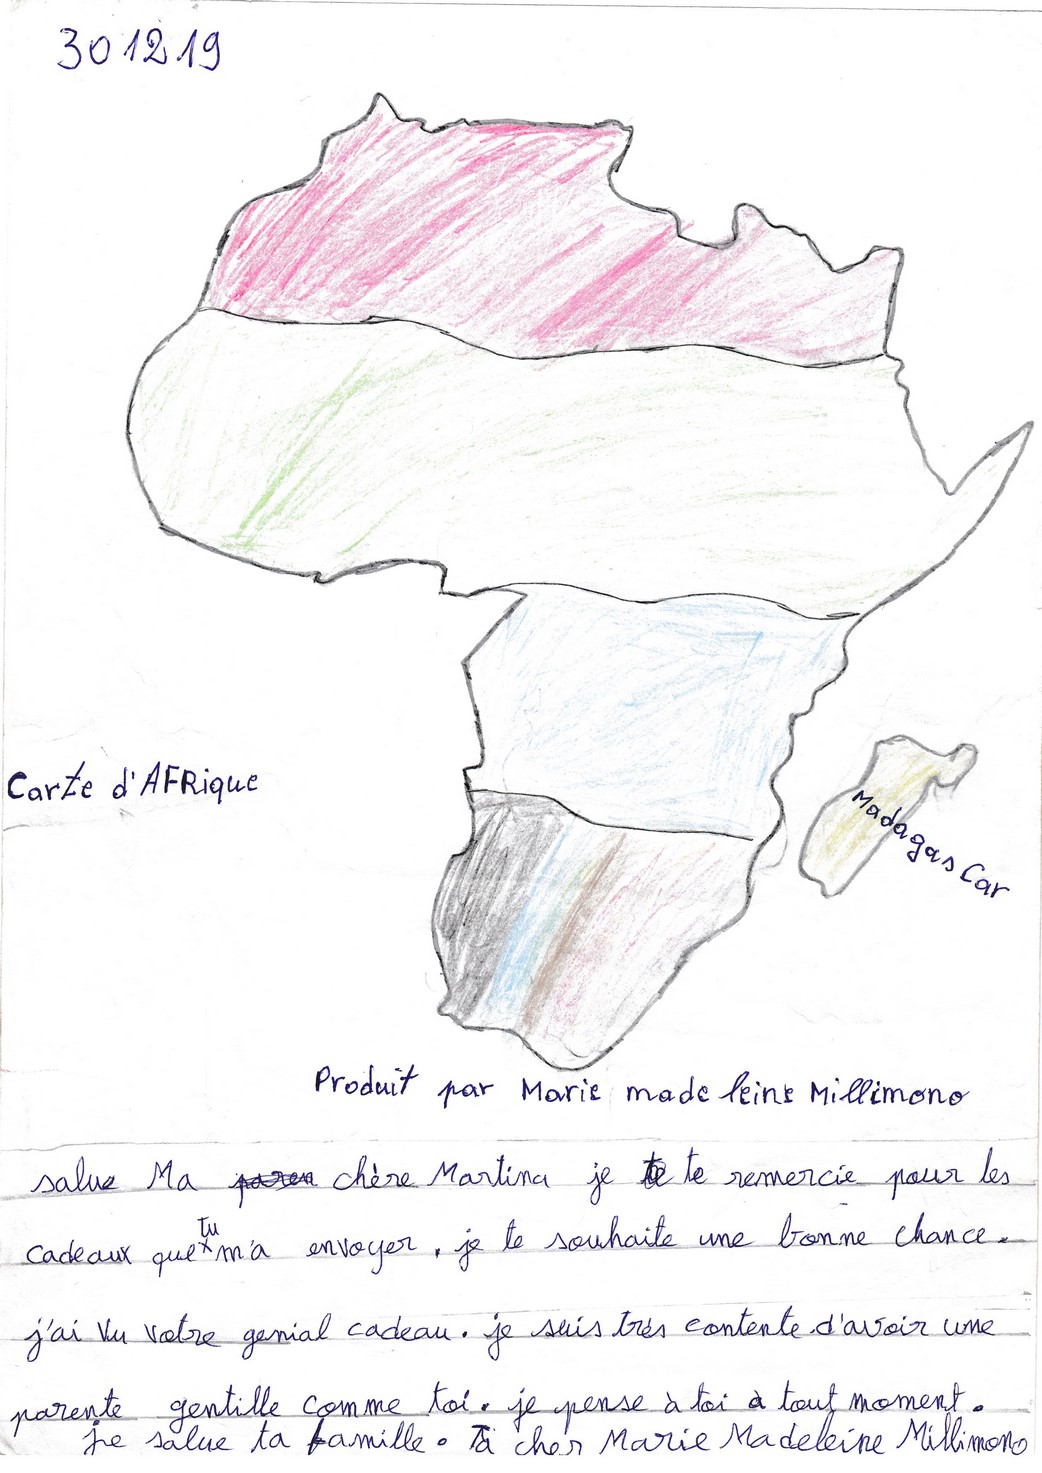 301219
Carte d'AFRique
Madagascar
Produit par Marie madeleine Millimono
salue Ma chère Martina je te remercie pour les
cadeaux que tu m'a envoyer, je te souhaite une bonne chance.
j'ai vu votre genial cadeau. je suis très contente d'avoir une
parente gentille comme toi. je pense à toi à tout moment.
je salue ta famille. Ta cher Marie Madeleine Millimono